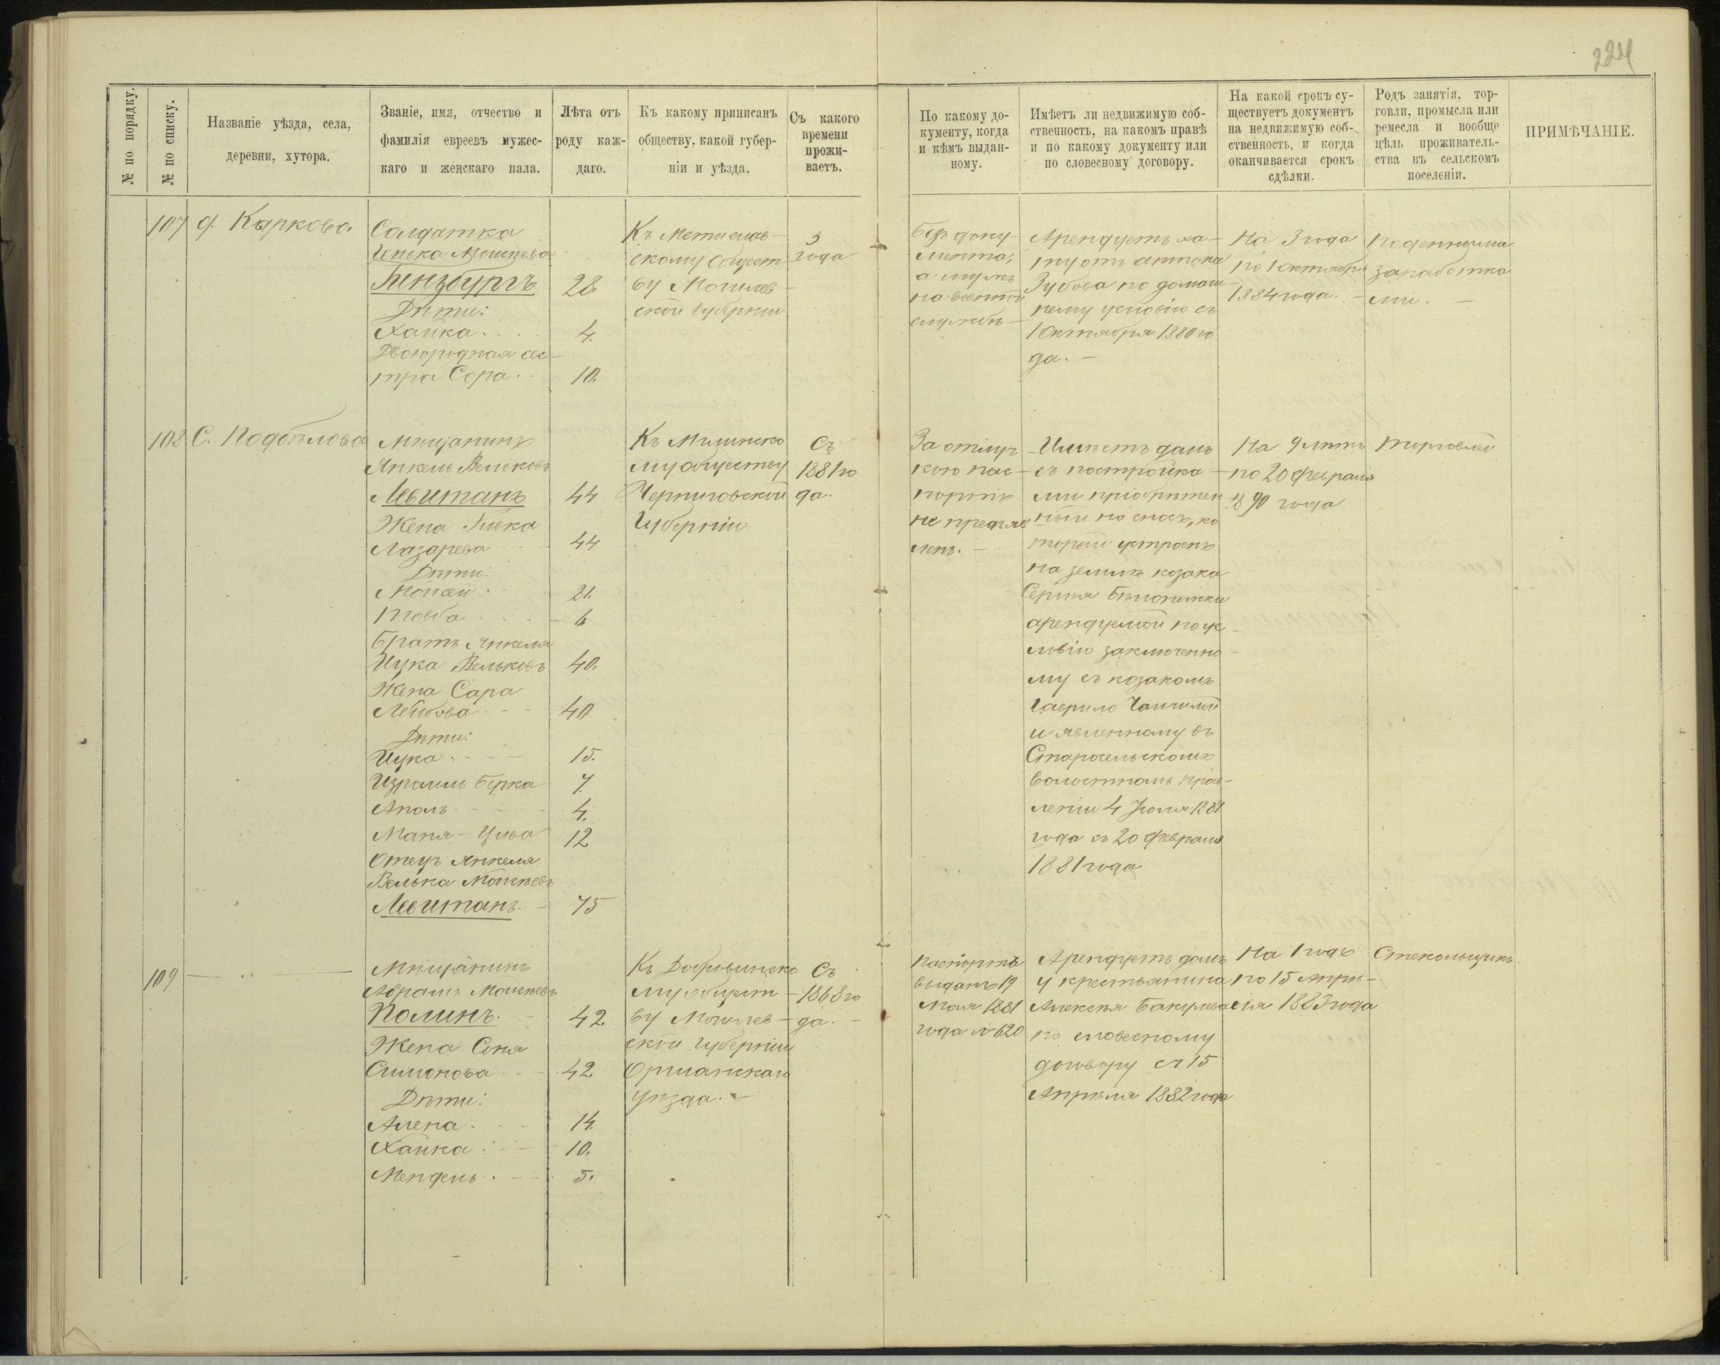 224
№ по порядку.
№ по списку.
Названіе уѣзда, села,
деревни, хутора.
Званіе, имя, отчество и
фамилія евреевъ мужес-
каго и женскаго пала.
Лѣта отъ
роду каж-
даго.
Къ какому приписанъ
обществу, какой губер-
ніи и уѣзда.
Съ какого
времени
прожи-
ваетъ.
По какому до-
кументу, когда
и кѣмъ выдан-
ному.
Имѣетъ ли недвижимую соб-
ственность, на какомъ правѣ
и по какому документу или
по словесному договору.
На какой срокъ су-
ществуетъ документъ
на недвижимую соб-
ственность, и когда
оканчивается срокъ
сдѣлки.
Родъ занятія, тор-
говли, промысла или
ремесла и вообще
цѣль проживатель-
ства въ сельскомъ
поселеніи.
ПРИМѢЧАНІЕ.
107
д. Кыркова
Солдатка
Генька Мошѣева
Гинзбургъ 28.
Дѣти:
Хайка 4.
Двоюродная сес-
тра Сора 10.
Къ Мстислав-
скому Общест-
ву Могилев-
ской Губерніи
3
года
Безъ доку
мента,
а мужъ
на военной
службѣ
Арендуетъ ха-
ту отъ
Зубова по домаш-
нему условію съ
1 Октября 1880 го
да.
На 3 года
по 1 Октября
1884 года.
Поденными
заработка
ми.
108
С. Подбѣлова
Мѣщанинъ
Янкель Вельковъ
Левитанъ 44
Жена Гинка
Лазарева 44
Дѣти:
Моисей 21.
Товба 6
Братъ Янкеля
Ицка Вельковъ 40.
Жена Сара
Лейбова 40
Дѣти:
Ицка 15.
Израиль Берка 7.
4.
Маня-Цива 12
Отецъ Янкеля
Велька Мошѣевъ
Левитанъ 75
Къ Мглинско
му обществу
Черниговской
Губерніи
Съ
1881 го
да.
За отлуч
кою пас-
портъ
не предъяв
ленъ.
Имѣетъ домъ
съ постройка-
ми пріобрѣтен
ный на сносъ, ко
торый устроенъ
на землѣ козака
Сергия
арендуемой по ус
ловію заключенно-
му съ козакомъ
Гаврило
и явленному въ
Старосельскомъ
волостномъ прав-
леніи 4 Іюля 1881
года съ 20 февраля
1881 года
На 9 лѣтъ
по 20 февраля
1890 года
Торговлей
109
Мѣщанинъ
Абрамъ Мошѣевъ
Полинъ 42.
Жена Соня
Симонова 42.
Дѣти:
Алена 14.
Хайка 10.
Мендель 5.
Къ Дубровинско
му общест-
ву Могилев-
ской Губерніи
Оршанскаго
уѣзда.
Съ
1868 го
да.
Паспортъ
выданъ 19
Мая 1881
года № 620
Арендуетъ домъ
у крестьянина
Алексѣя Бакумова
по словесному
договору съ 15
Апрѣля 1882 года
На 1 годъ
по 15 Апрѣ-
ля 1883 года
Стекольщикъ